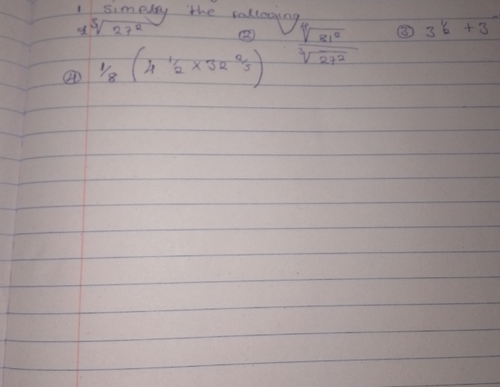 1 Simplify the following
∛27² ② ∜81⁰ / ∛27² ③ 3 ½ + 3
④ 1/8 (4 ½ × 32 ²/₅)